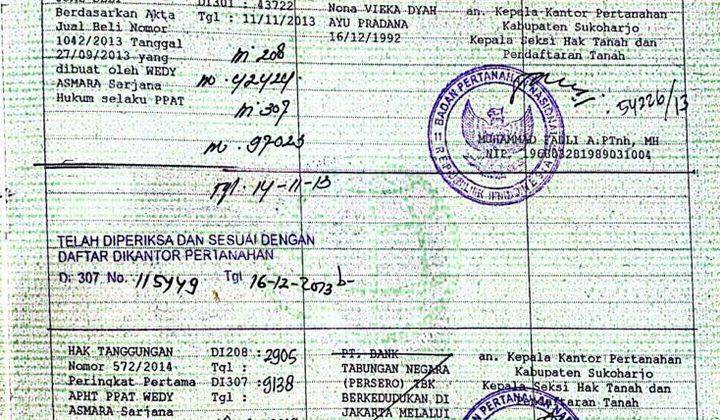 DI301 : 43722
Berdasarkan Akta
Tgl : 11/11/2013
Jual Beli Nomor
1042/2013 Tanggal
27/09/2013 yang
dibuat oleh WEDY
ASMARA Sarjana
Hukum selaku PPAT
m 208
no. 42424
m 307
m. 97023
Tgl : 14-11-13
Nona VIEKA DYAH
AYU PRADANA
16/12/1992
an. Kepala Kantor Pertanahan
Kabupaten Sukoharjo
Kepala Seksi Hak Tanah dan
Pendaftaran Tanah
54226/13
BADAN PERTANAHAN NASIONAL
REPUBLIK INDONESIA
MUHAMMAD FADLI A.PTnh, MH
NIP. 196803281989031004
TELAH DIPERIKSA DAN SESUAI DENGAN
DAFTAR DIKANTOR PERTANAHAN
Di 307 No. 115449 Tgl 16-12-2013
HAK TANGGUNGAN
Nomor 572/2014
Peringkat Pertama
APHT PPAT WEDY
ASMARA Sarjana
DI208 : 2905
Tgl :
DI307 : 9138
Tgl :
PT. BANK
TABUNGAN NEGARA
(PERSERO) TBK
BERKEDUDUKAN DI
JAKARTA MELALUI
an. Kepala Kantor Pertanahan
Kabupaten Sukoharjo
Kepala Seksi Hak Tanah dan
Pendaftaran Tanah